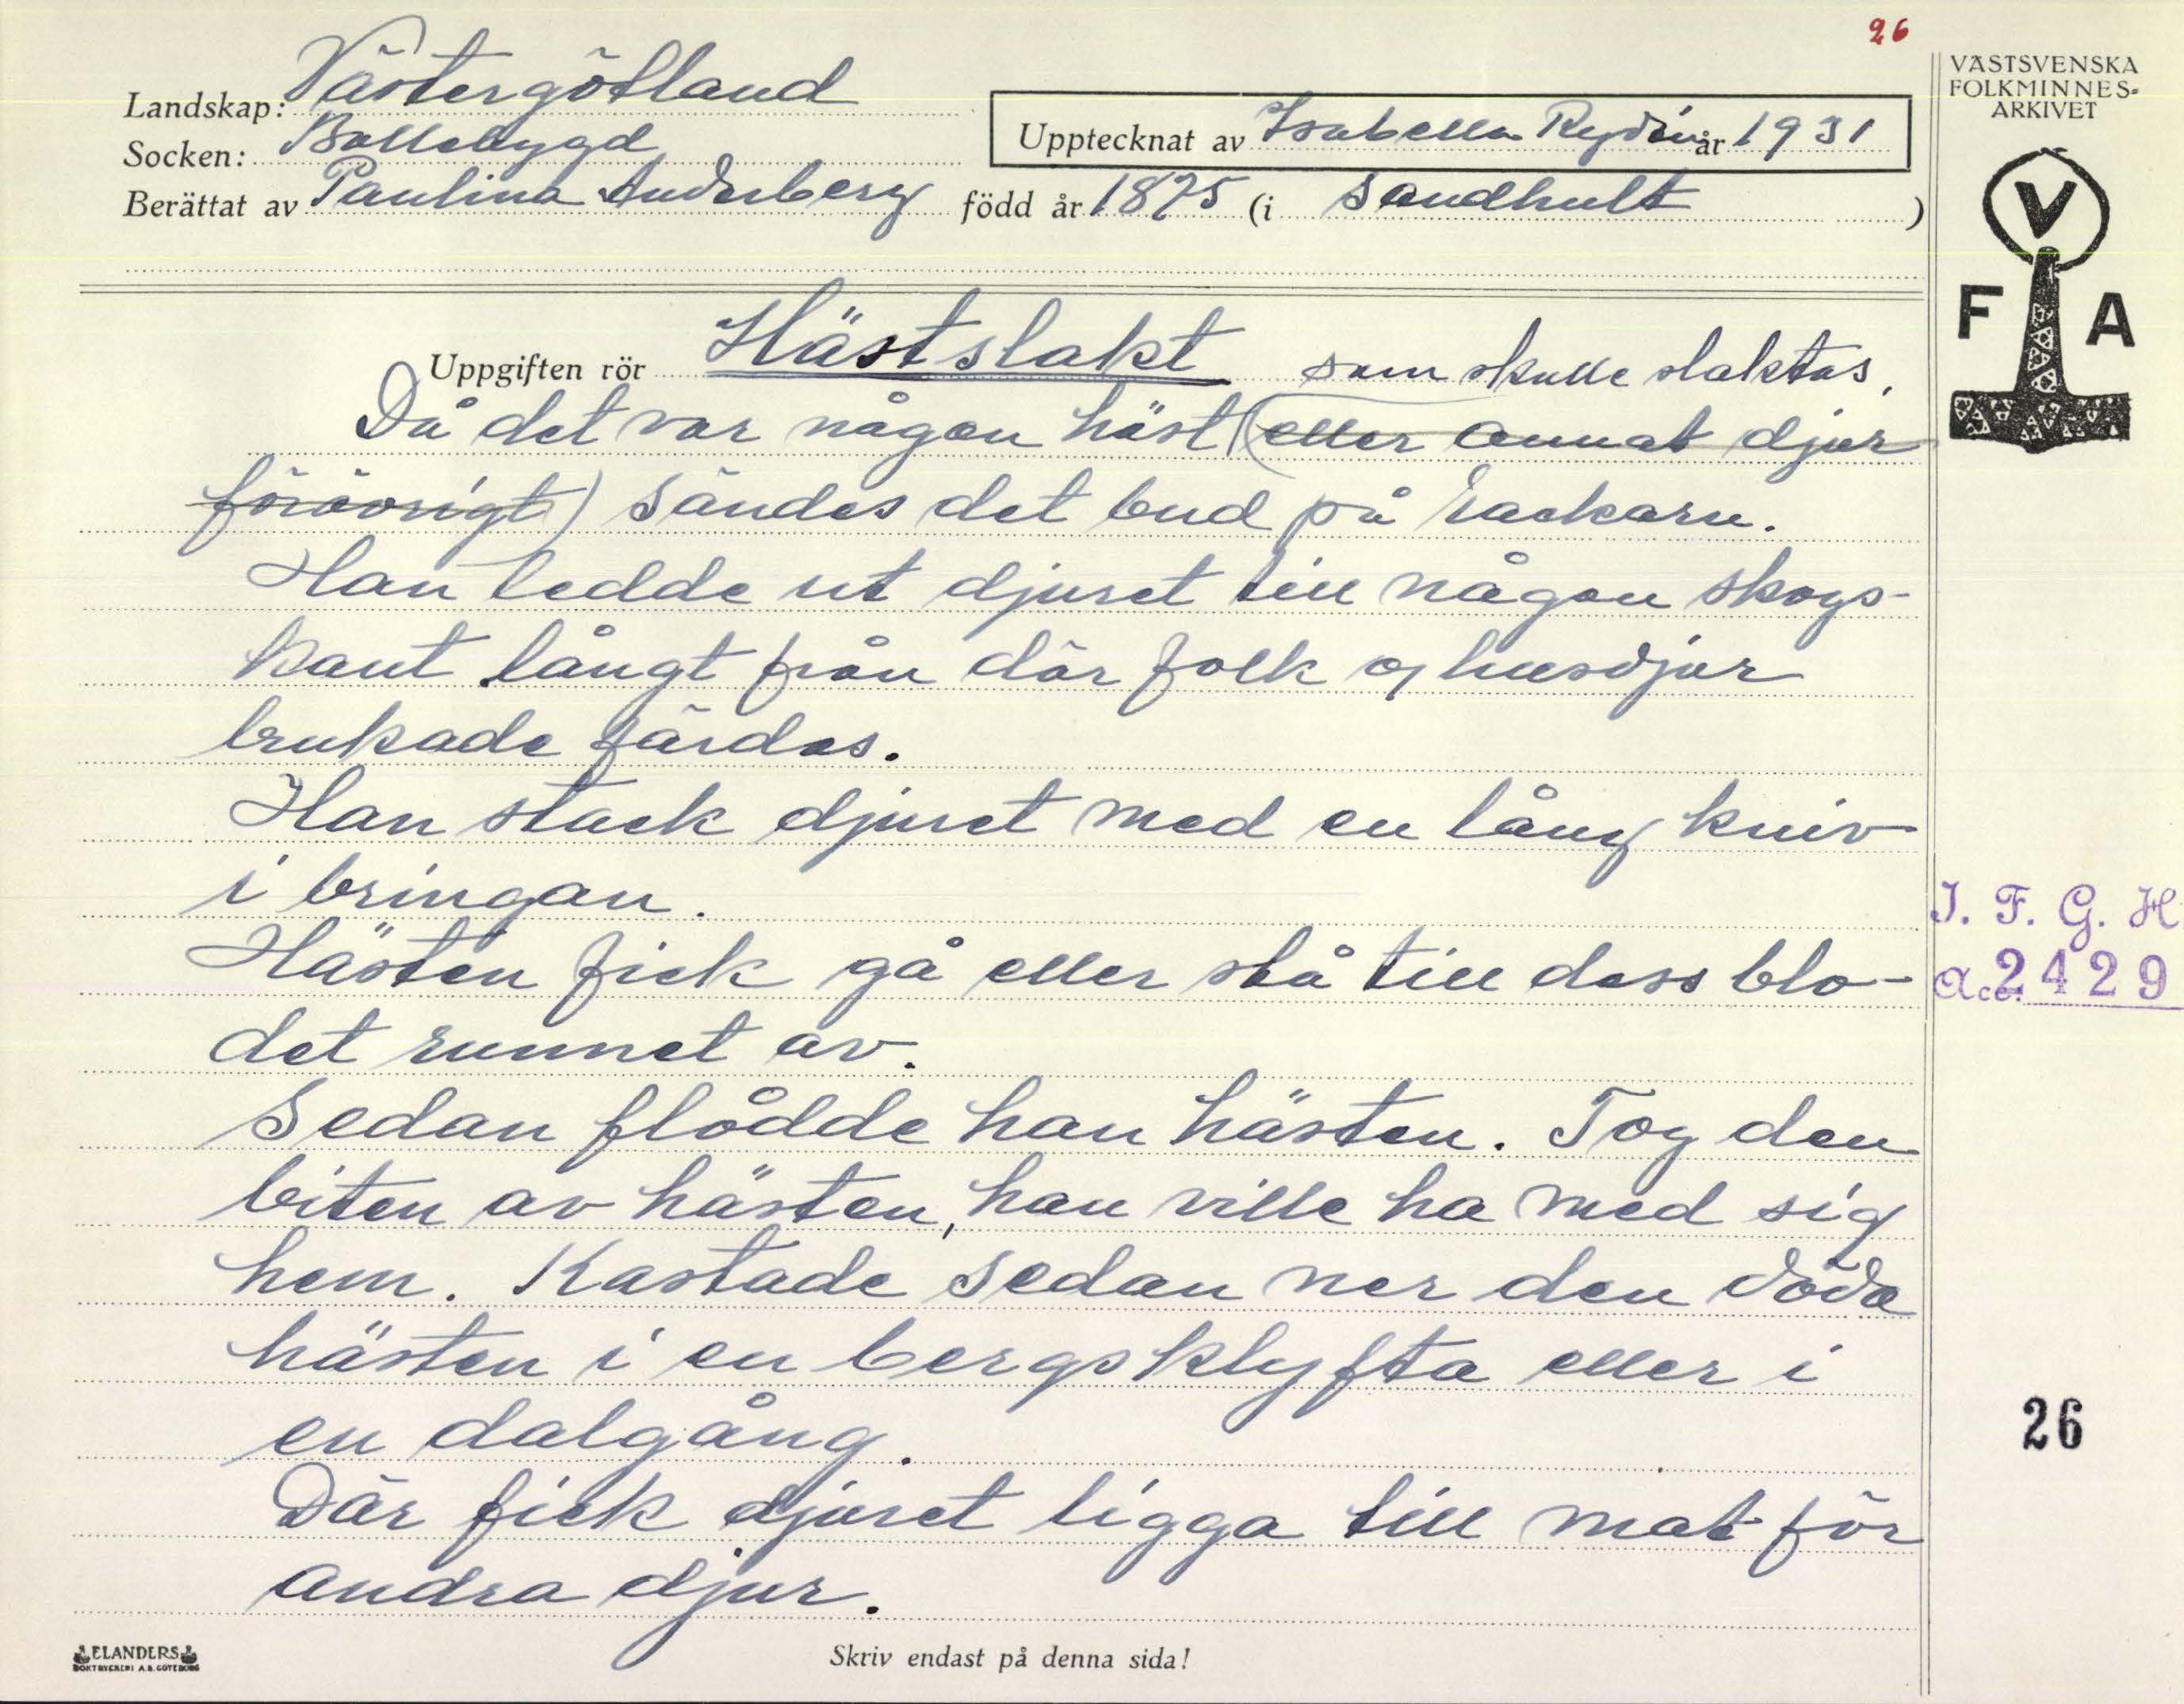 26
Landskap: Västergötland
Socken: Bollebygd
Berättat av Paulina Anderberg född år 1875 (i Sandhult)
Upptecknat av Isabella Rydén år 1931
VÄSTSVENSKA
FOLKMINNES-
ARKIVET
V
F A
Uppgiften rör Hästslakt
som skulle slaktas,
Då det var någon häst (eller annat djur
förövrigt) sändes det bud på rackarn.
Han ledde ut djuret till någon skogs-
kant långt från där folk o husdjur
brukade färdas.
Han stack djuret med en lång kniv
i bringan.
Hästen fick gå eller stå till dess blo-
det runnet av.
Sedan flådde han hästen. Tog den
biten av hästen, han ville ha med sig
hem. Kastade sedan ner den döda
hästen i en bergsklyfta eller i
en dalgång.
Där fick djuret ligga till mat för
andra djur.
I. F. G. H
Acc. 2429
26
ELANDERS
BOKTRYCKERI A.B. GÖTEBORG
Skriv endast på denna sida!